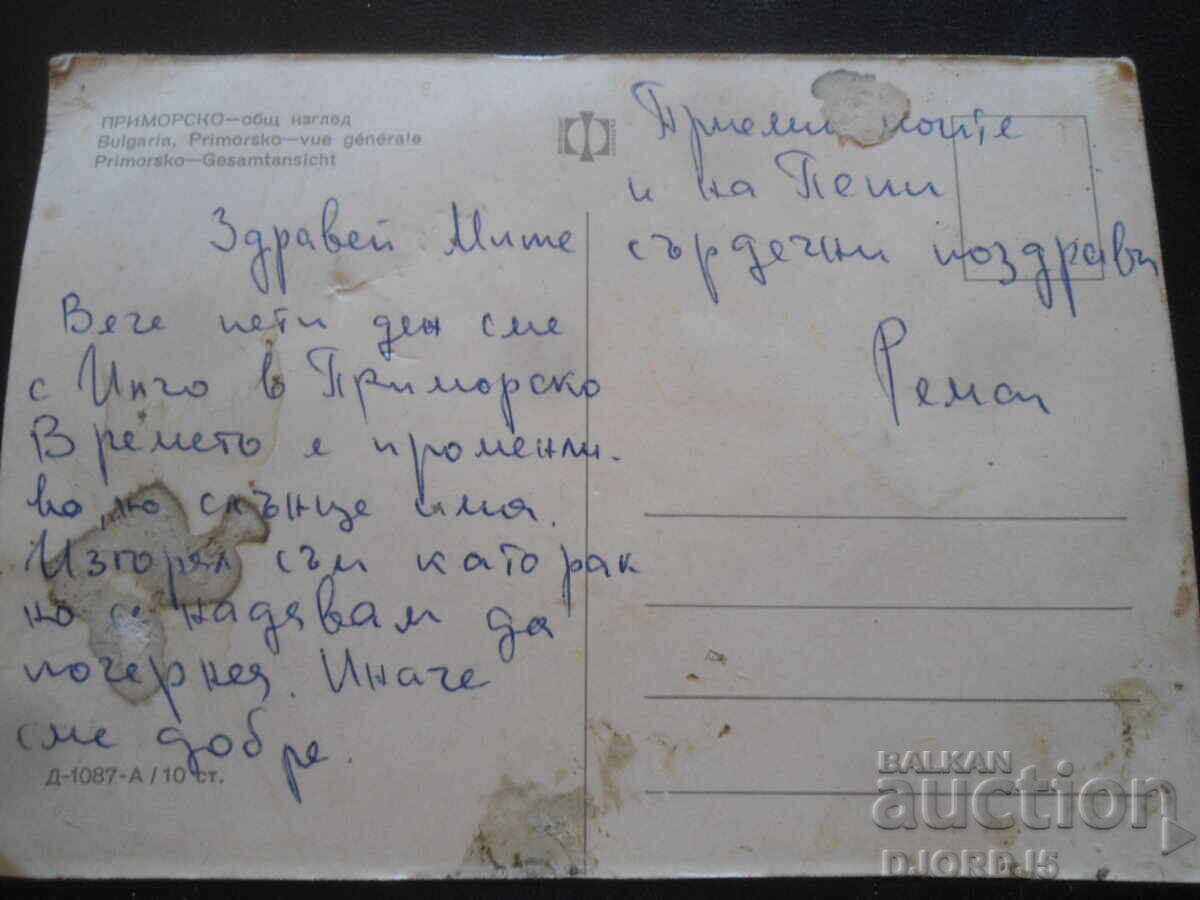 ПРИМОРСКО—общ изглед
Bulgaria, Primorsko—vue générale
Primorsko—Gesamtansicht
Здравей Мите
Вече пети ден сме
с Инго в Приморско
Времето е променли-
во, но слънце има.
Изгорял съм като рак
но се надявам да
почернея. Иначе
сме добре.
Д-1087-А / 10 ст.
Приеми моите
и на Пепи
сърдечни поздрави
BALKAN
auction
DJORD_J5